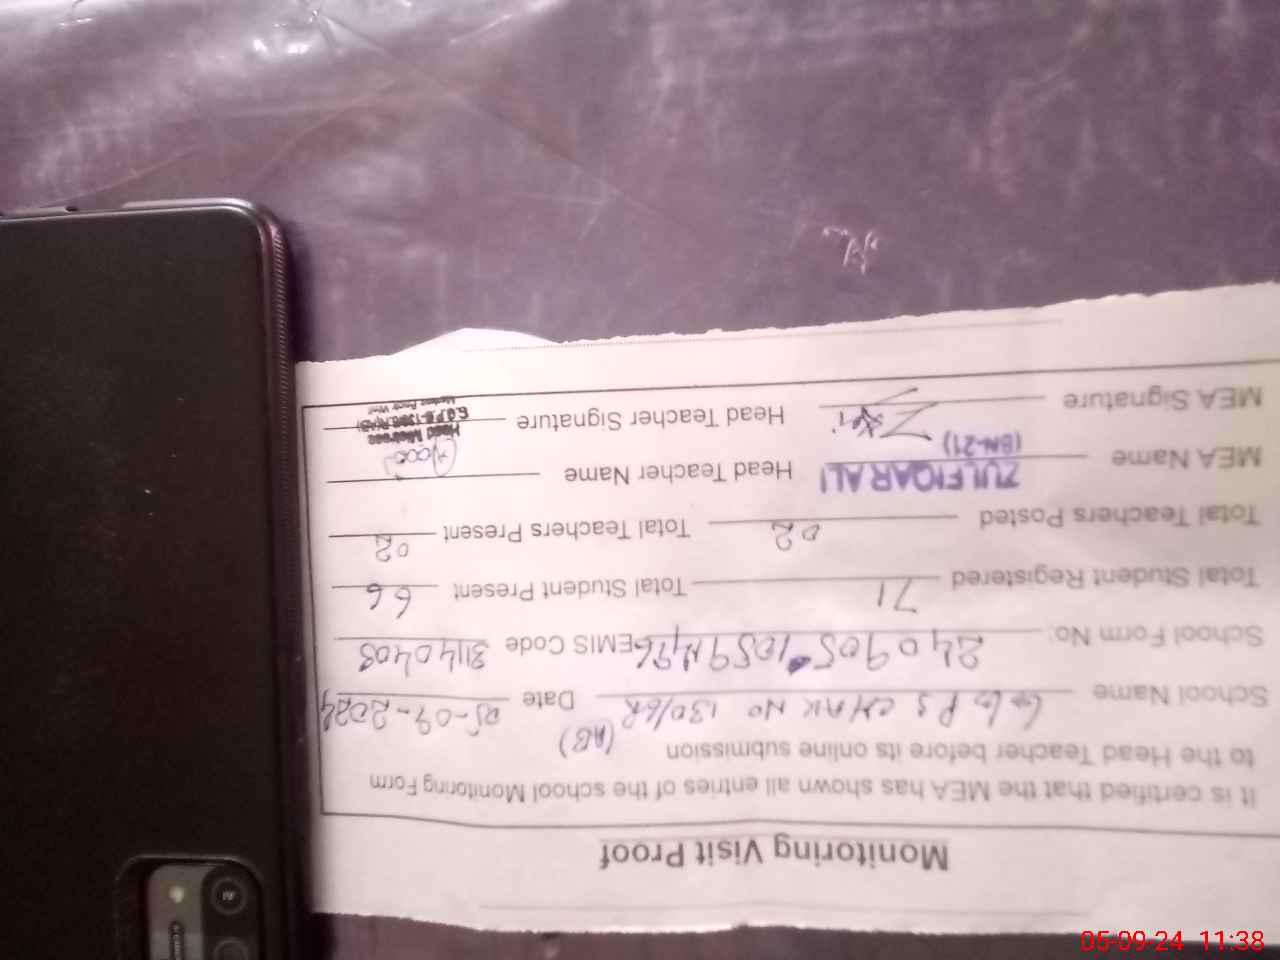 Monitoring Visit Proof
It is certified that the MEA has shown all entries of the school Monitoring Form
to the Head Teacher before its online submission (AB)
School Name GGPS CHAK NO 130/6R Date 05-09-2024
School Form No: 240905 1059 EMIS Code 31140408
Total Student Registered 71 Total Student Present 66
Total Teachers Posted 02 Total Teachers Present 02
MEA Name ZULFIQAR ALI (BN-21) Head Teacher Name
MEA Signature Head Teacher Signature
Head Mistress
05-09-24 11:38